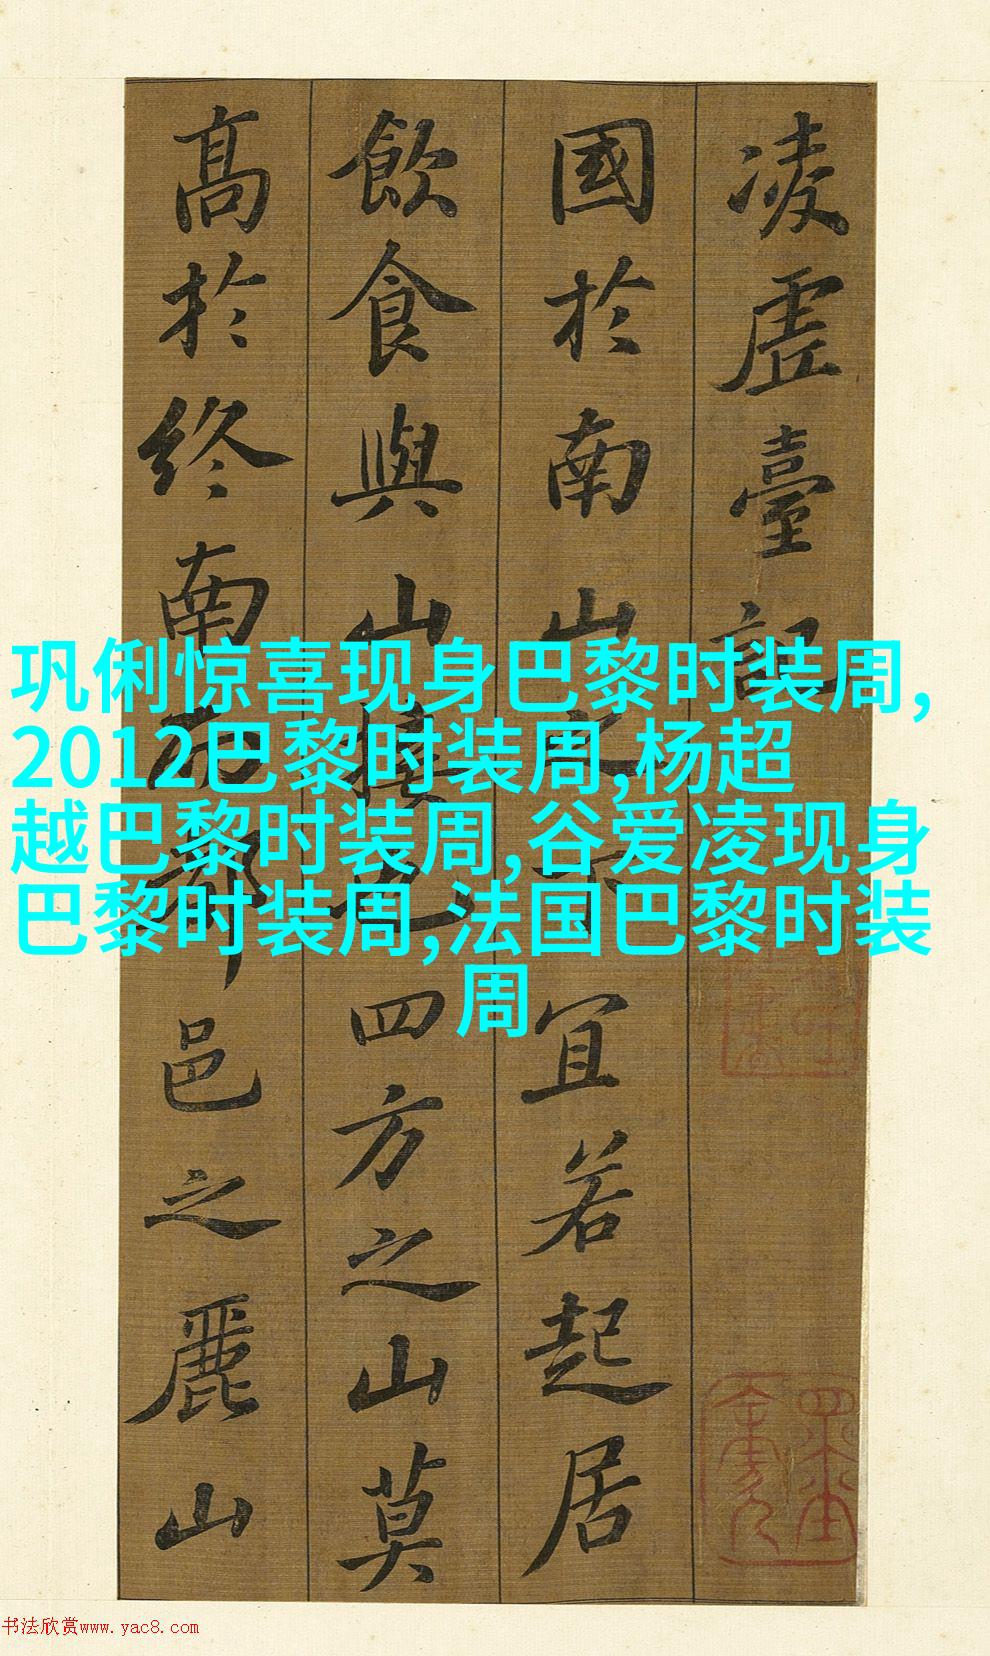 凌虗臺記
國於南山之下宜若起居
飲食與山接也四方之山莫
髙於終南而都邑之麗山
巩俐惊喜现身巴黎时装周,
2012巴黎时装周,杨超
越巴黎时装周,谷爱凌现身
巴黎时装周,法国巴黎时装
周
书法欣赏www.yac8.com